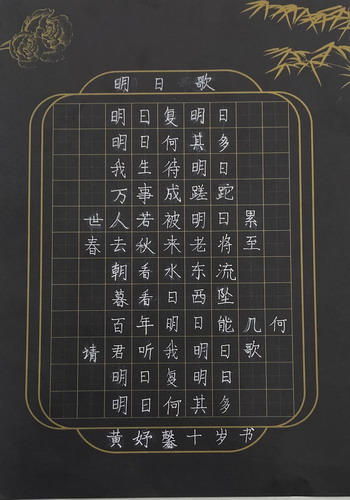 明日歌
明日复明日
明日何其多
我生待明日
万事成蹉跎
世人若被明日累
春去秋来老将至
朝看水东流
暮看日西坠
百年明日能几何
请君听我明日歌
明日复明日
明日何其多
黄妤馨十岁书